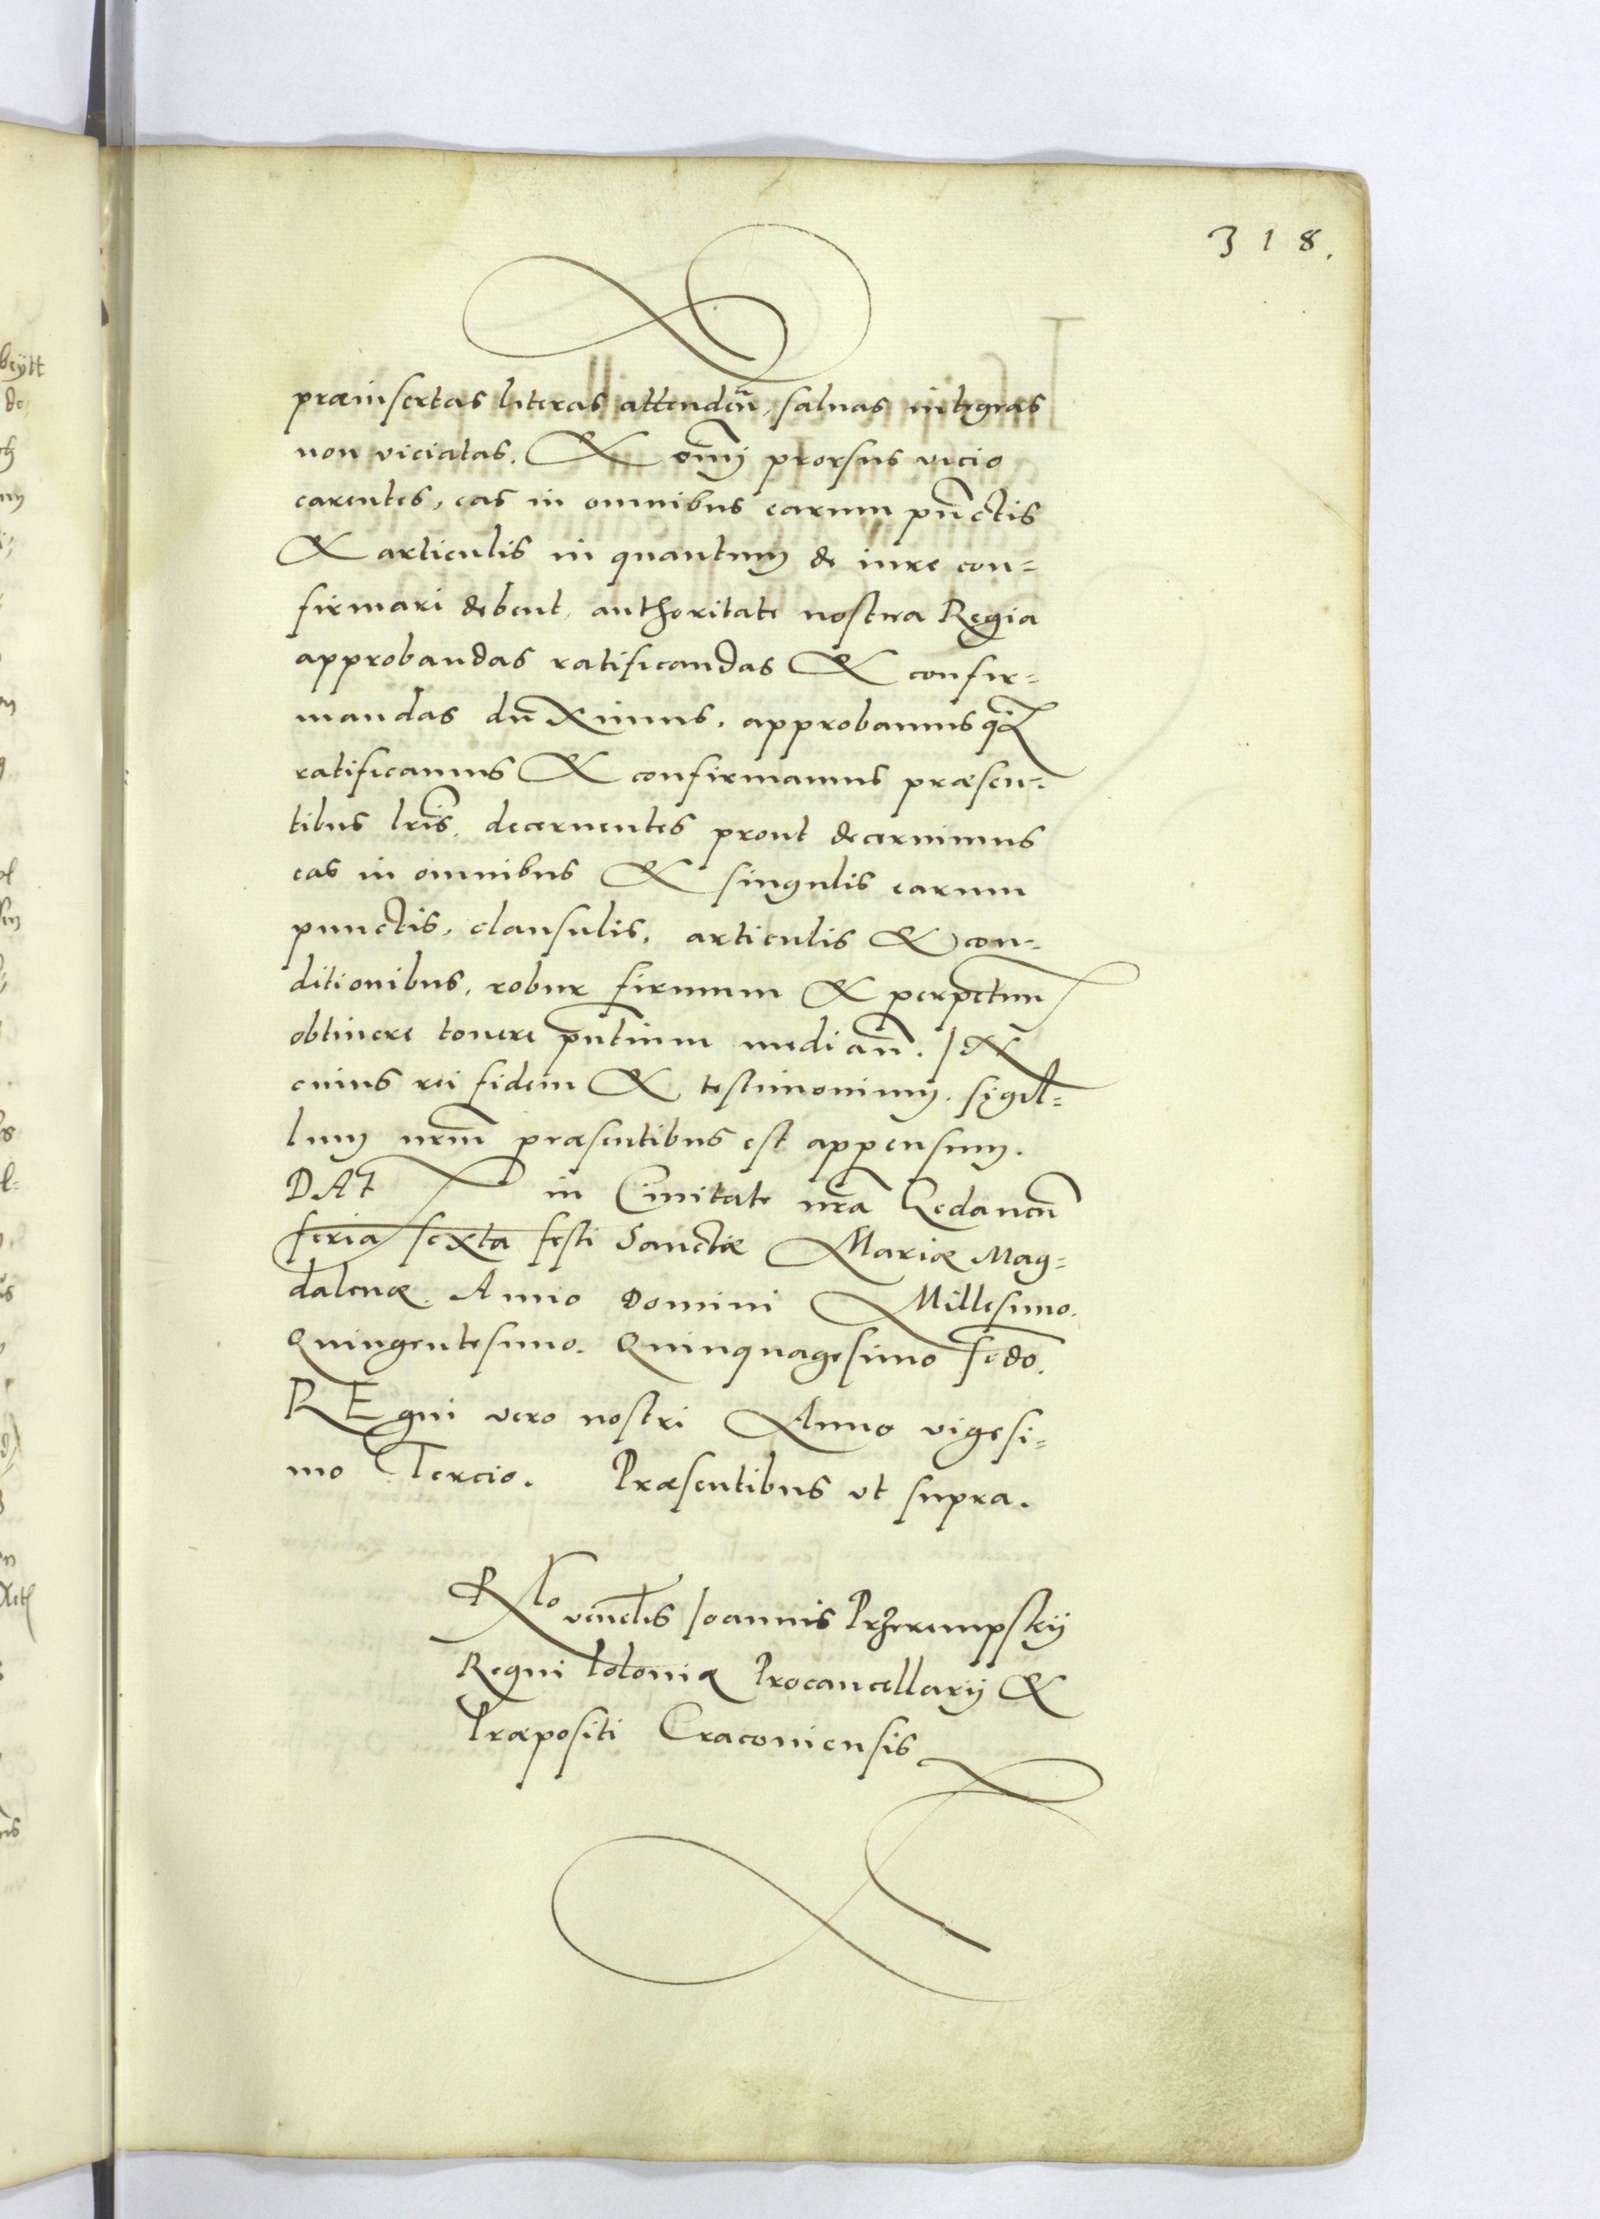 318.
præinsertas literas attendeñ, saluas integras
non viciatas. & om̃j prorsus vicio
carentes, eas in omnibus earum pũctis
& articulis in quantum de iure con=
firmari debent, authoritate nostra Regia
approbandas ratificandas & confir=
mandas duximus. approbamusq̃
ratificamus & confirmamus præsen=
tibus lr̃is. decernentes prout decernimus
eas in omnibus & singulis earum
punctis, clausulis, articulis & con=
ditionibus, robur firmum & perpetuu
obtinere tenere pñtium median̄. IN
cuius rei fidem & testimonium. sigil=
lum nr̃m præsentibus est appensum.
DAT in Ciuitate nr̃a Gedaneñ
feria sexta festi Sanctæ Mariæ Mag=
dalenæ. Anno Domini Millesimo.
Quingentesimo. Quinquagesimo secdo.
REgni vero nostri Anno vigesi=
mo Tercio. Præsentibus vt supra.
Rlo venelis Ioannis Przerempskij
Regni Poloniæ Procancellarij &
Præpositi Cracouiensis